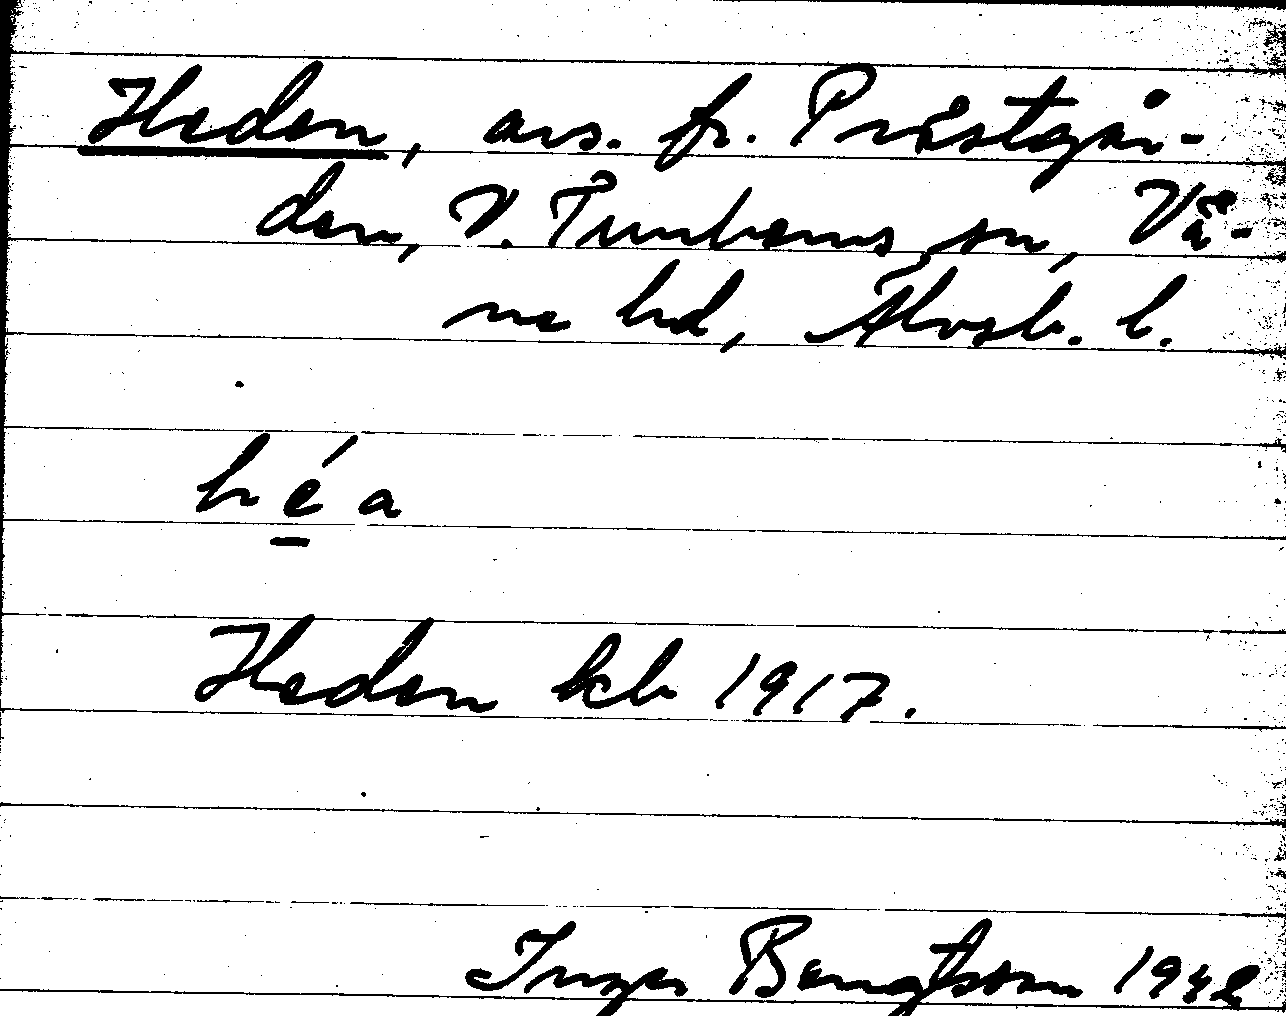 Heden, avs. fr. Prästgår-
den, V. Tunhems sn, Vä-
ne hd, Älvsb. l.
hé̱a
Heden kb 1917.
Inger Bengtsson 1942